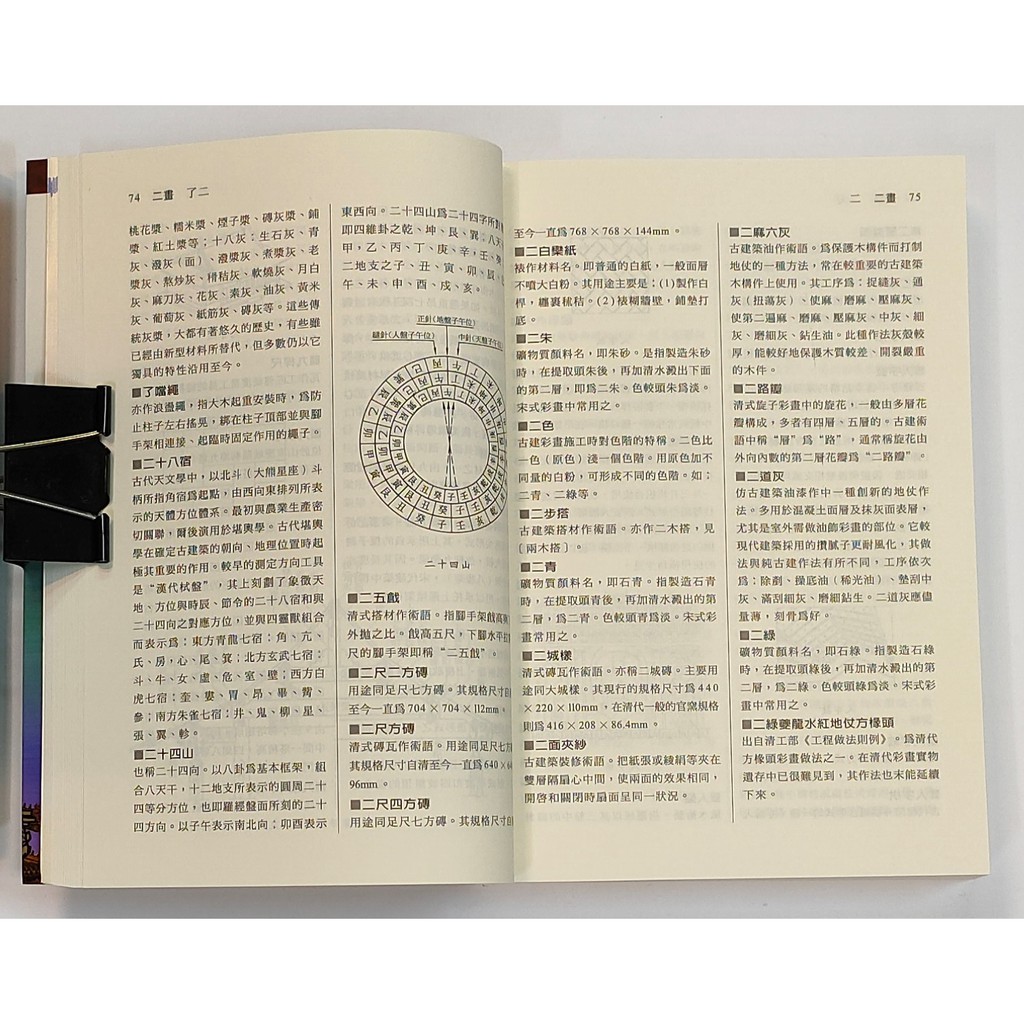 74 二畫 了二
桃花漿、糯米漿、煙子漿、磚灰漿、鋪
漿、紅土漿等；十八灰：生石灰、青
灰、潑灰（面）、潑漿灰、煮漿灰、老
漿灰、熬炒灰、稽秸灰、軟燒灰、月白
灰、麻刀灰、花灰、素灰、油灰、黃米
灰、葡萄灰、紙筋灰、磚灰等。這些傳
統灰漿，大都有著悠久的歷史，有些雖
已經由新型材料所替代，但多數仍以它
獨具的特性沿用至今。
■了噹繩
亦作浪盪繩，指大木起重安裝時，爲防
止柱子左右搖晃，綁在柱子頂部並與腳
手架相連接、起臨時固定作用的繩子。
■二十八宿
古代天文學中，以北斗（大熊星座）斗
柄所指角宿爲起點，由西向東排列所表
示的天體方位體系。最初與農業生產密
切關聯，爾後演用於堪輿學。古代堪輿
學在確定古建築的朝向、地理位置時起
極其重要的作用。較早的測定方向工具
是“漢代栻盤”，其上刻劃了象徵天
地、方位與時辰、節令的二十八宿和與
二十四向之對應方位，並與四靈獸組合
而表示爲：東方青龍七宿：角、亢、
氏、房，心、尾、箕；北方玄武七宿：
斗、牛、女、虛、危、室、壁；西方白
虎七宿：奎、婁、胃、昂、畢、觜、
參；南方朱雀七宿：井、鬼、柳、星、
張、翼、軫。
■二十四山
也稱二十四向。以八卦爲基本框架，組
合八天干，十二地支所表示的圓周二十
四等分方位，也即羅經盤面所刻的二十
四方向。以子午表示南北向；卯酉表示
東西向。二十四山爲二十四字所
即四維卦之乾、坤、艮、巽；八天
甲，乙、丙、丁、庚、辛，壬、癸
二地支之子、丑、寅、卯、辰、
午、未、申、酉、戌、亥。
正針（地盤子午位）
縫針（人盤子午位） 中針（天盤子午位）
二十四山
■二五戧
清式搭材作術語。指腳手架戧高
外拋之比。戧高五尺，下腳水平
尺的腳手架即稱“二五戧”。
■二尺二方磚
用途同足尺七方磚。其規格尺寸
至今一直爲704×704×112mm。
■二尺方磚
清式磚瓦作術語。用途同足尺七
格尺寸自清至今一直爲640×64
96mm。
■二尺四方磚
用途同足尺七方磚。其規格尺寸自
二 二畫 75
至今一直爲768×768×144mm。
■二白欒紙
裱作材料名。即普通的白紙，一般面層
不噴大白粉。其用途主要是：(1)製作白
桿，纏裹秫秸。(2)裱糊牆壁，鋪墊打
底。
■二朱
礦物質顏料名，即朱砂。是指製造朱砂
時，在提取頭朱後，再加清水澱出下面
的第二層，即爲二朱。色較頭朱爲淡。
宋式彩畫中常用之。
■二色
古建彩畫施工時對色階的特稱。二色比
一色（原色）淺一個色階。用原色加不
同量的白粉，可形成不同的色階。如；
二青、二綠等。
■二步搭
古建築搭材作術語。亦作二木搭，見
〔兩木搭〕。
■二青
礦物質顏料名，即石青。指製造石青
時，在提取頭青後，再加清水澱出的第
二層，爲二青。色較頭青爲淡。宋式彩
畫常用之。
■二城樣
清式磚瓦作術語。亦稱二城磚。主要用
途同大城樣。其現行的規格尺寸爲440
×220×110mm，在清代一般的官窰規格
則爲416×208×86.4mm。
■二面夾紗
古建築裝修術語。把紙張或綾絹等夾在
雙層隔扇心中間，使兩面的效果相同，
開啓和關閉時扇面呈同一狀況。
■二麻六灰
古建築油作術語。爲保護木構件而打制
地仗的一種方法，常在較重要的古建築
木構件上使用。其工序爲：捉縫灰、通
灰（扭蕩灰）、使麻、磨麻、壓麻灰、
使第二遍麻、磨麻、壓麻灰、中灰、細
灰、磨細灰、鉆生油。此種作法灰殼較
厚，能較好地保護木質較差、開裂嚴重
的木件。
■二路瓣
清式旋子彩畫中的旋花，一般由多層花
瓣構成，多者有四層、五層的。古建術
語中稱“層”爲“路”，通常稱旋花由
外向內數的第二層花瓣爲“二路瓣”。
■二道灰
仿古建築油漆作中一種創新的地仗作
法。多用於混凝土面層及抹灰面表層，
尤其是室外需做油飾彩畫的部位。它較
現代建築採用的攢膩子更耐風化，其做
法與純古建作法有所不同，工序依次
爲：除剷、操底油（稀光油）、墊刮中
灰、滿刮細灰、磨細鉆生。二道灰應儘
量薄，刻骨爲好。
■二綠
礦物質顏料名，即石綠。指製造石綠
時，在提取頭綠後，再加清水澱出的第
二層，爲二綠。色較頭綠爲淡。宋式彩
畫中常用之。
■二綠夔龍水紅地仗方椽頭
出自清工部《工程做法則例》。爲清代
方椽頭彩畫做法之一。在清代彩畫實物
遺存中已很難見到，其作法也未能延續
下來。